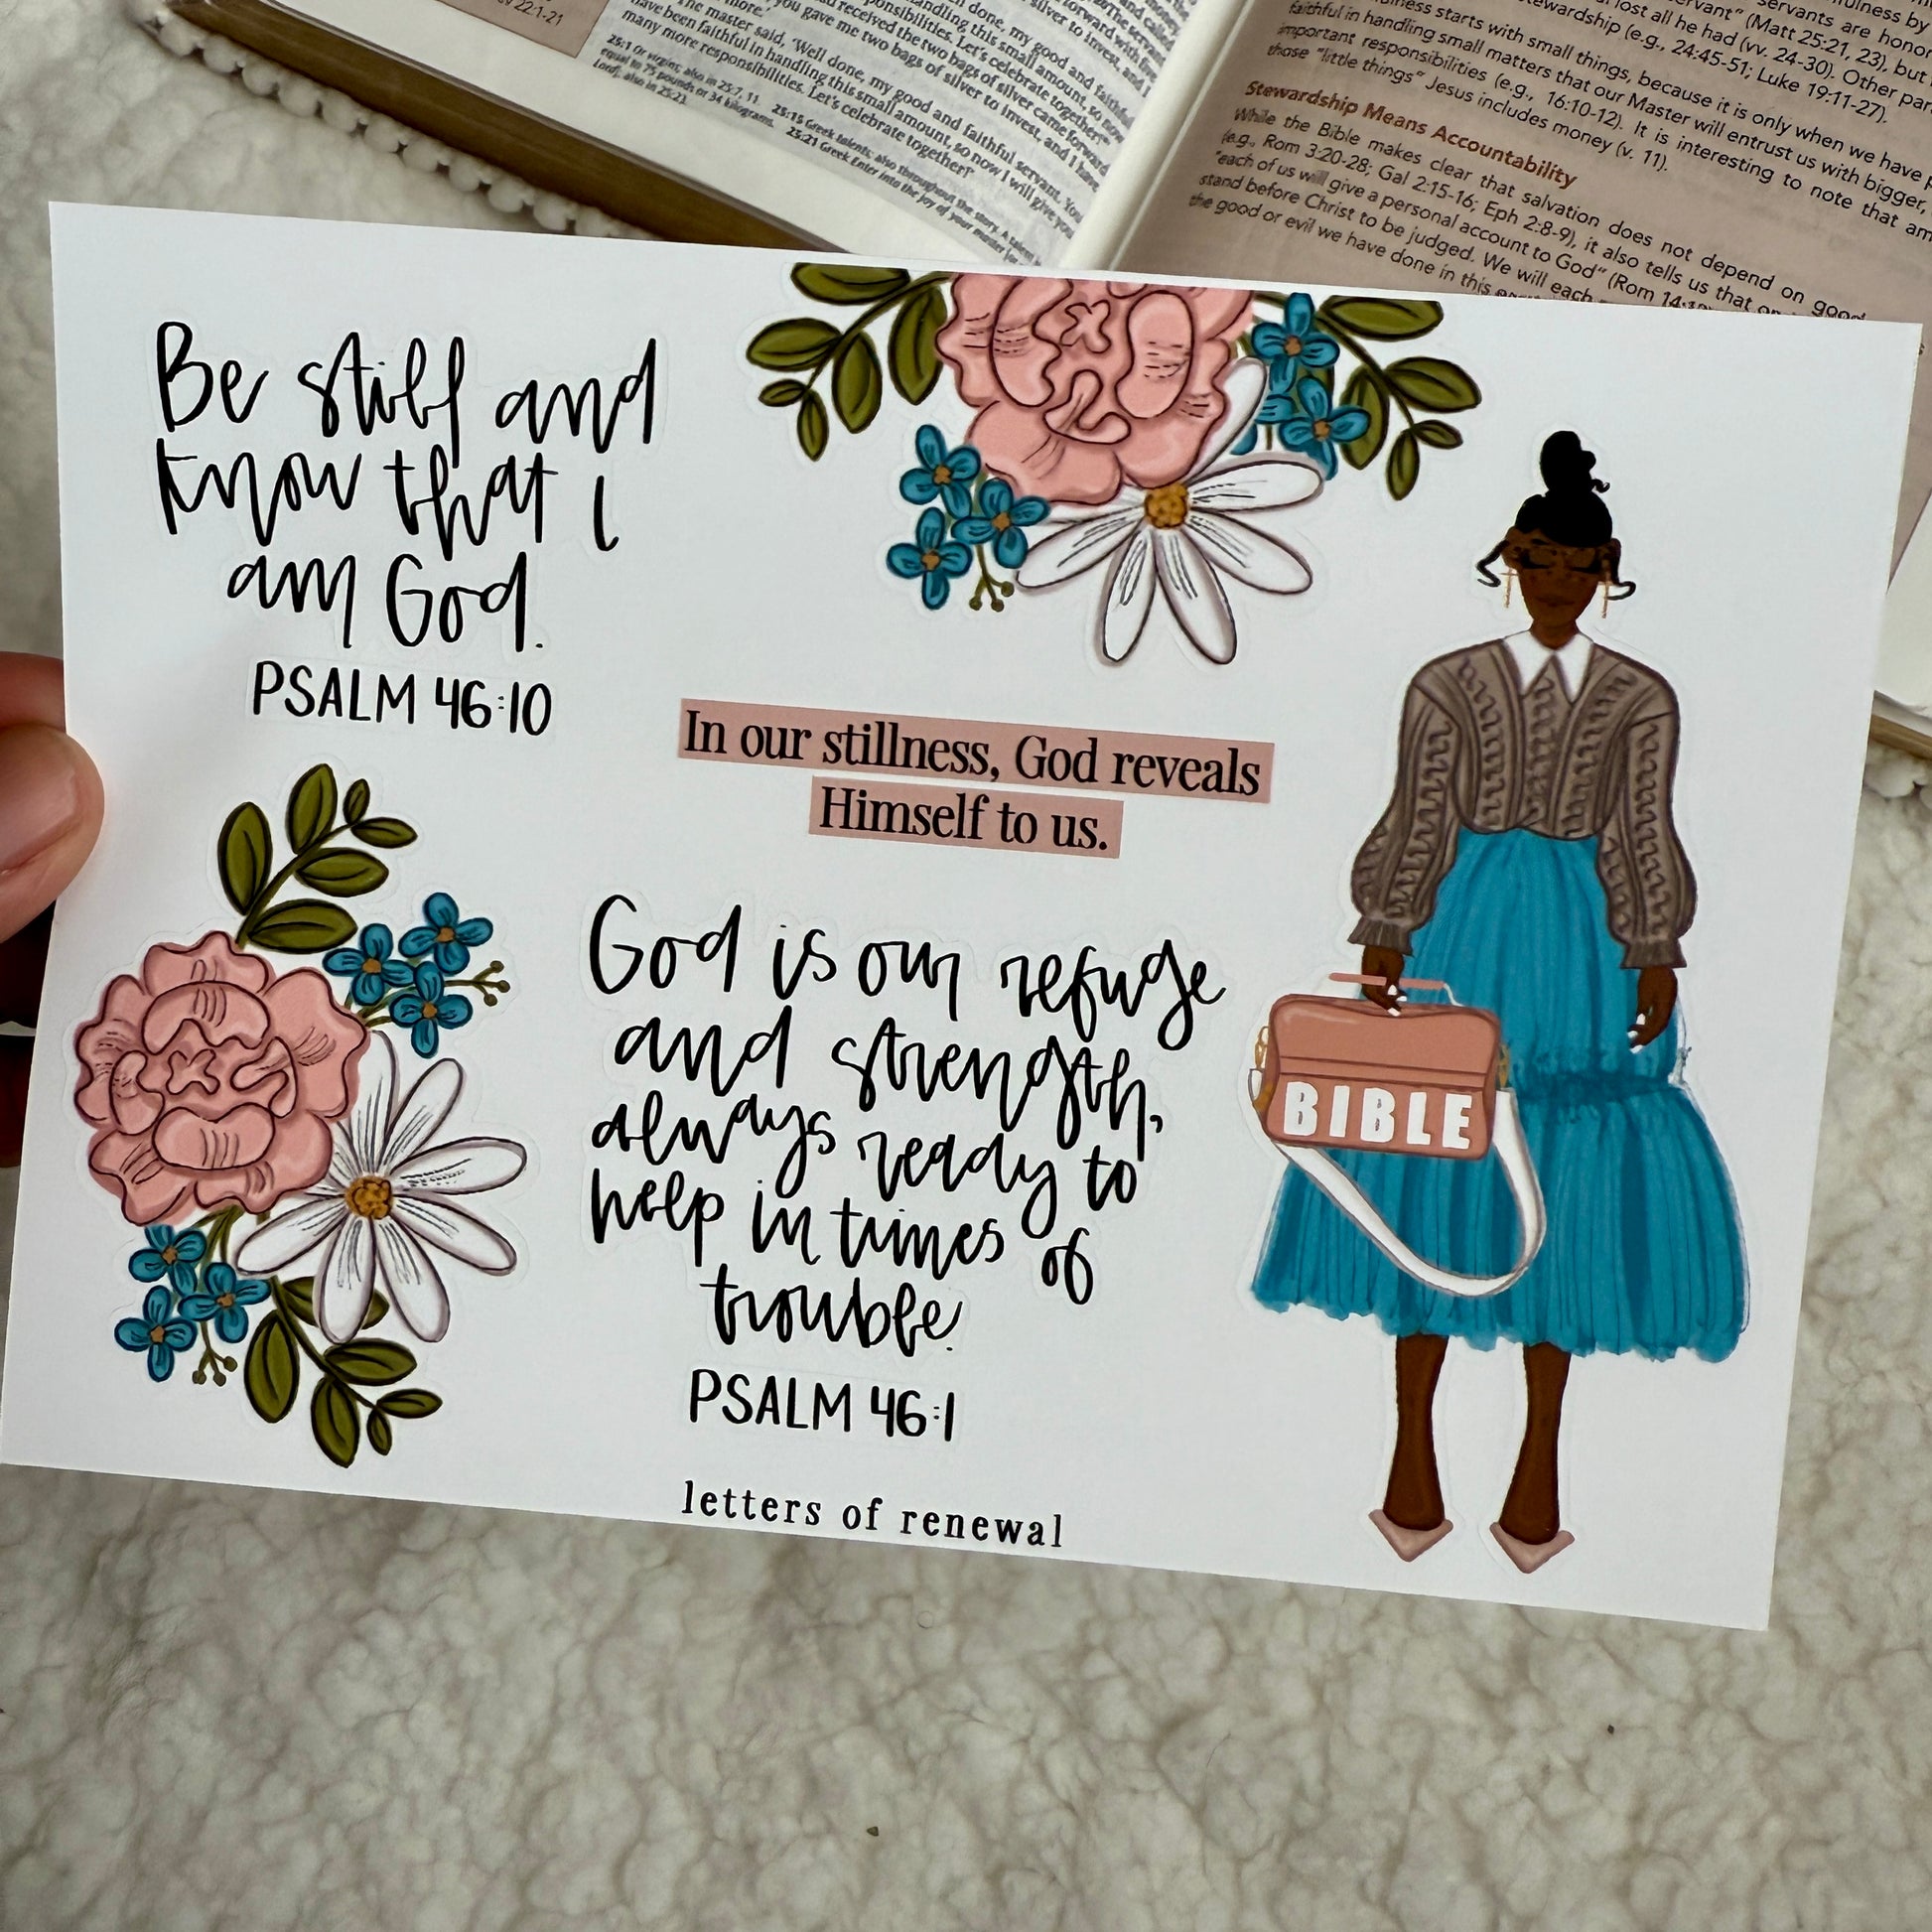 22:1-21
more.'
The master said, 'Well done, my good and faithful servant. You
have been faithful in handling this small amount, so now I will give you
many more responsibilities. Let's celebrate together!'
25:1 Or virgins; also in 25:7, 11. 25:15 Greek talents; also throughout the story. A talent
equal to 75 pounds or 34 kilograms. 25:21 Greek Enter into the joy of your master
Lord; also in 25:23.
lost all he had (vv. 24-30). Other
stewardship (e.g., 24:45-51; Luke 19:11-27).
starts with small things, because it is only when we have
faithful in handling small matters that our Master will entrust us with bigger,
important responsibilities (e.g., 16:10-12). It is interesting to note that
those "little things" Jesus includes money (v. 11).
Stewardship Means Accountability
While the Bible makes clear that salvation does not depend on good
(e.g., Rom 3:20-28; Gal 2:15-16; Eph 2:8-9), it also tells us that
"each of us will give a personal account to God" (Rom
stand before Christ to be judged. We will each
the good or evil we have done in this
Be still and
know that I
am God.
PSALM 46:10
In our stillness, God reveals
Himself to us.
God is our refuge
and strength,
always ready to
help in times of
trouble.
PSALM 46:1
BIBLE
letters of renewal